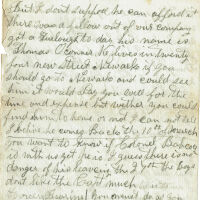 But I dont suppose he can afford it
There was a fellow out of our Company
got a Furlough to day his name is
Thomas Conner. He lives in twenty
four new street Newark if you
should go to Newark and could see
him it would pay you well for the
time and expense but wether you could
find him to home or not I can not tell
I believe he comes Back the 10th of March
You want to know if Colonel
is with us yet he is I guess there is no
danger of his leaving the 27th the Boys
dont like the Capt much
you must do as you